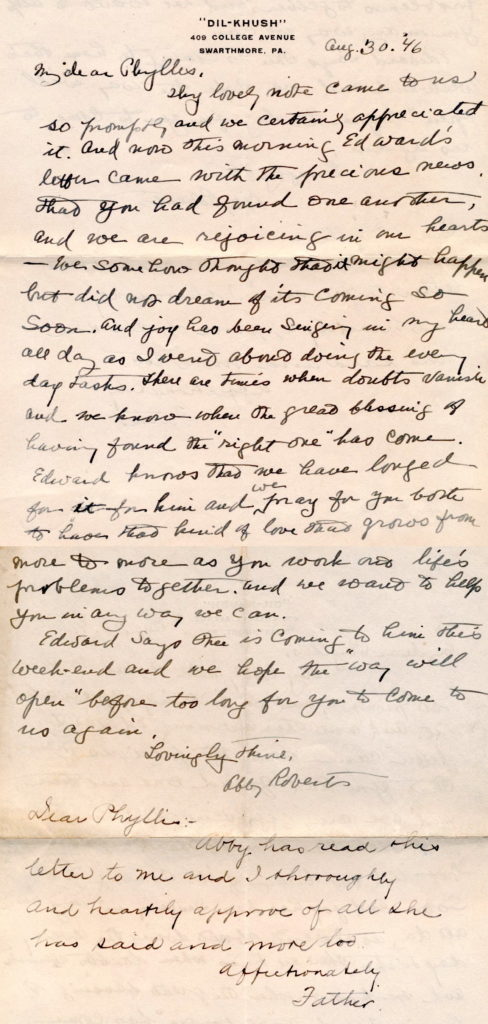 "DIL-KHUSH"
409 COLLEGE AVENUE
SWARTHMORE, PA.
Aug. 30. '46
My dear Phyllis,
Thy lovely note came to us
so promptly and we certainly appreciated
it. And now this morning Edward's
letter came with the precious news.
that you had found one another,
and we are rejoicing in our hearts
- We somehow thought that it might happen
but did not dream of its coming so
soon. And joy has been singing in my heart
all day as I went about doing the every
day tasks. There are times when doubts vanish
and we know when the great blessing of
having found the "right one" has come.
Edward knows that we have longed
for it for him and we pray for you both
to have that kind of love that grows from
more to more as you work out life's
problems together. And we want to help
you in any way we can.
Edward says thee is coming to him this
week-end and we hope the "way will
open" before too long for you to come to
us again.
Lovingly thine,
Abby Roberts
Dear Phyllis:-
Abby has read this
letter to me and I thoroughly
and heartily approve of all she
has said and more too.
Affectionately
Father.